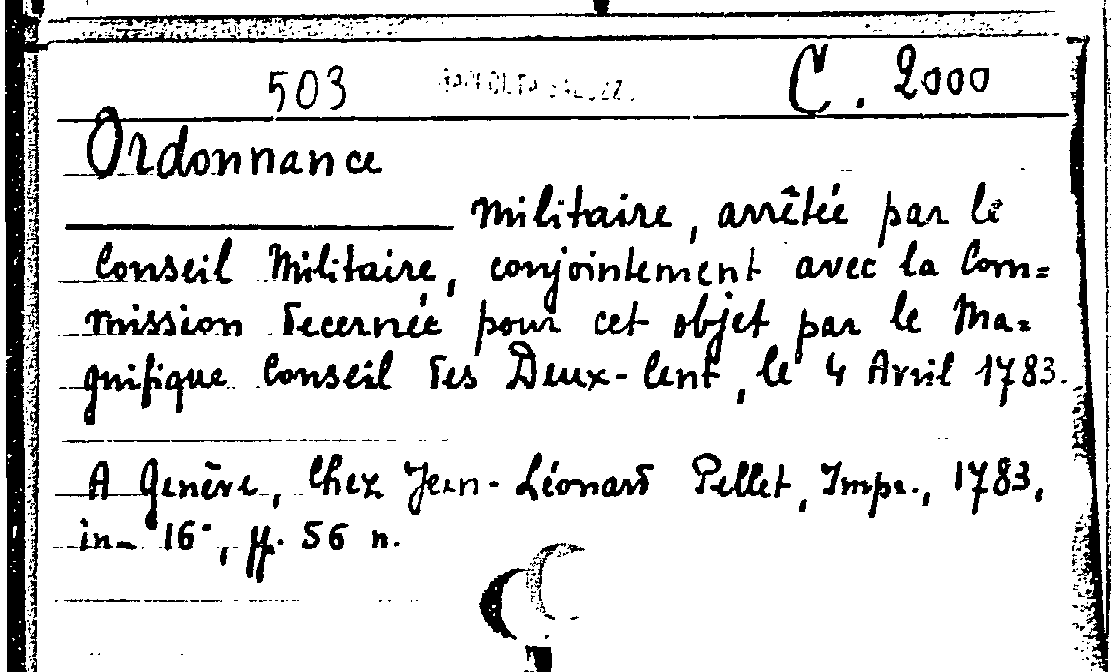 503 RACCOLTA SALUZZ. C. 2000
Ordonnance
Militaire, arrêtée par le
Conseil Militaire, conjointement avec la Com=
mission decernée pour cet objet par le Ma=
gnifique Conseil des Deux-Cent, le 4 Avril 1783.
A Genève, Chez Jean-Léonard Pellet, Impr., 1783,
in-16°, ff. 56 n.